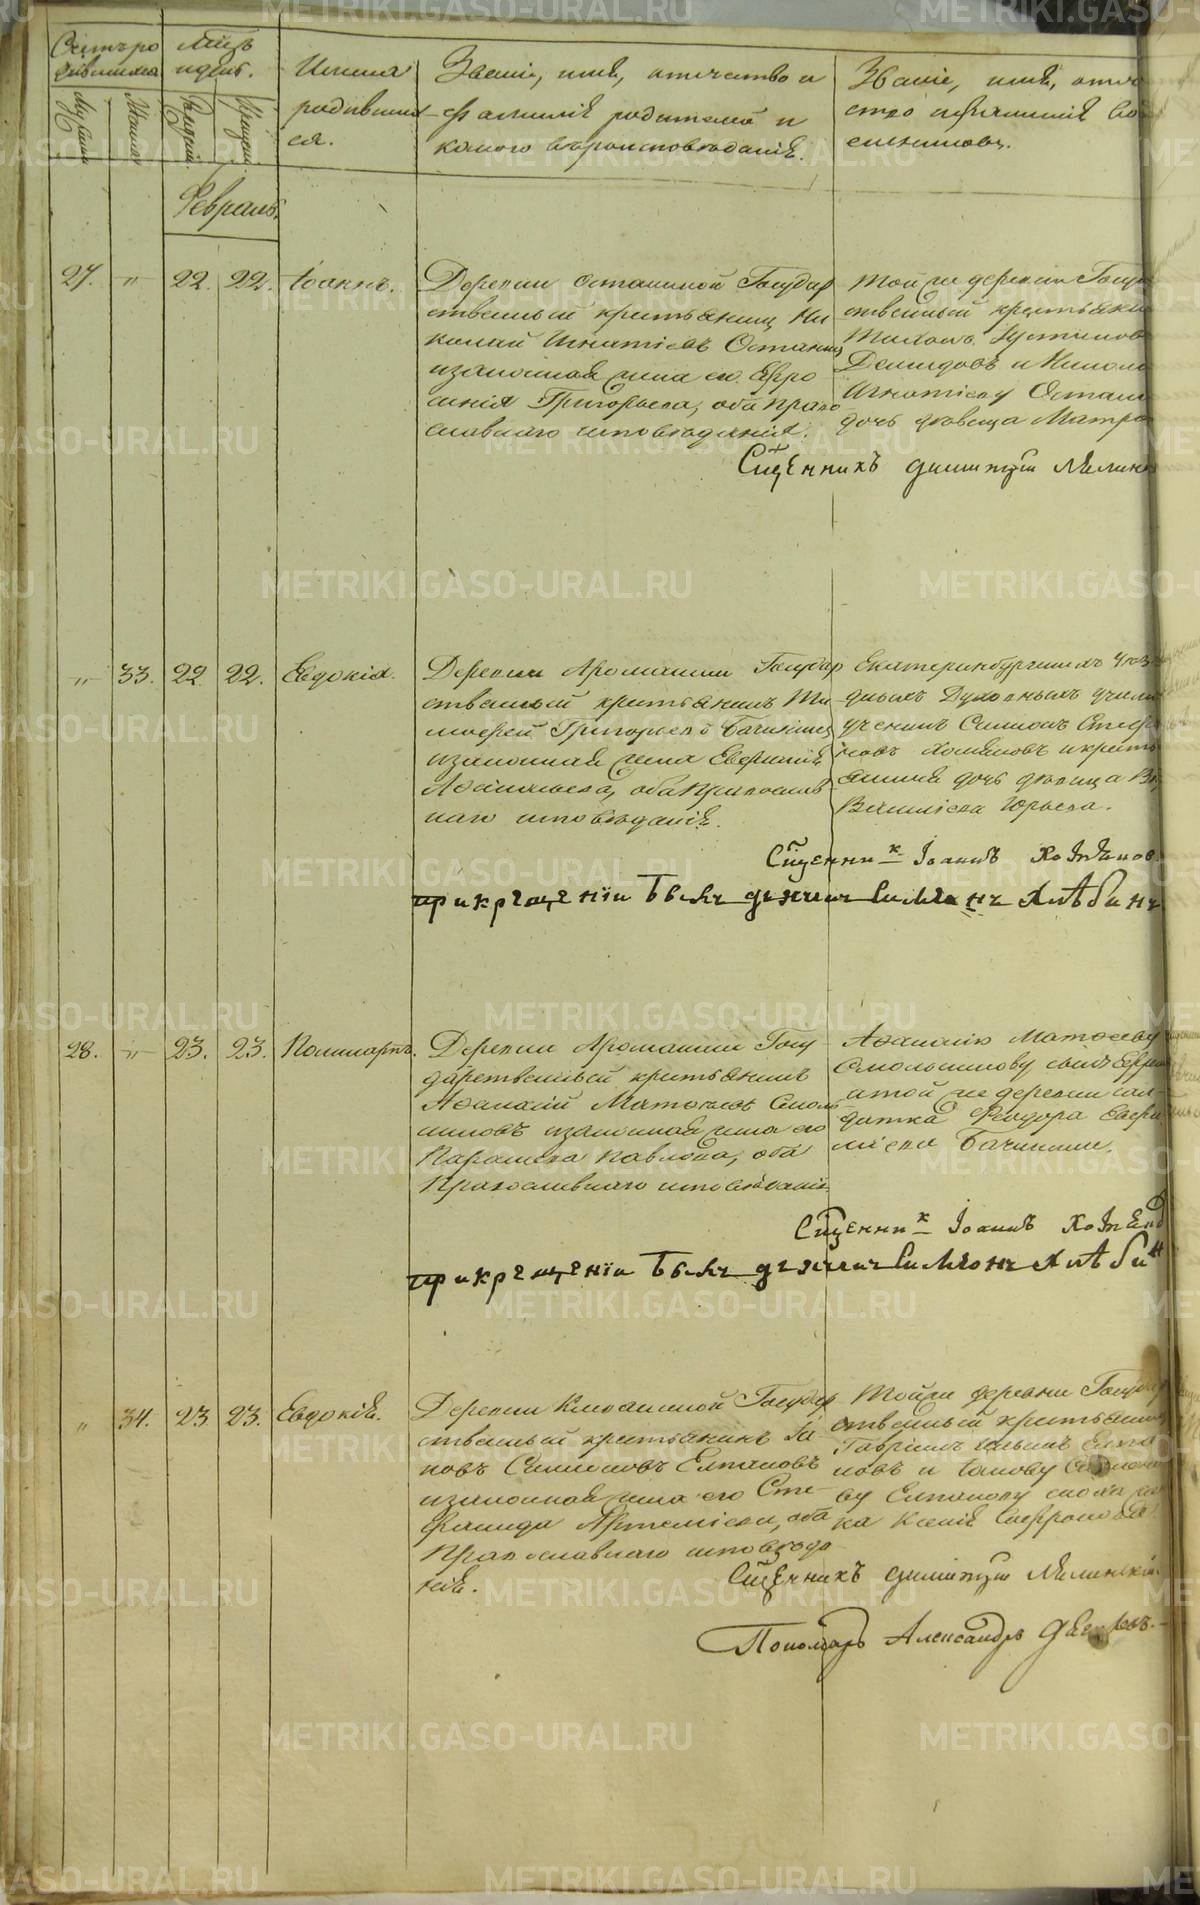 Счетъ ро
дившихся
Мѣсяцъ
и день.
Имена
родивших
ся.
Званіе, имя, отчество и
фамилія родителей и
какого вѣроисповѣданія.
Званіе, имя, отче
ство и фамилія во
спріемниковъ.
Мужеска
Женска
Рожденія
Крещенія
Февраль.
27. " 22. 22. Іоаннъ.
Деревни Останиной Государ
ственный крестьянинъ Ни
колай Игнатіевъ Останинъ
и законная жена его Евро
синія Григорьева, оба право
славнаго исповѣданія.
Той же деревни Госуда
ственный крестьянин
Тихонъ Іустиновъ
Демидовъ и Никола
Игнатіеву Остани
дочь дѣвица Матро
Сщенникъ Димитрій
" 33. 22. 22. Евдокія.
Деревни Аромашки Государ
ственный крестьянинъ Ти
мофей Григорьевъ Бачининъ
и законная жена Евфимія
Аѳанасьева, оба православ
наго исповѣданія.
Екатеринбургскихъ Уѣз
дныхъ Духовныхъ учили
ученикъ Симеонъ Стефа
новъ Хотяновъ и кресть
янина дочь дѣвица
Василіева Юрьева.
Сщенникъ Іоаннъ Хотѣновъ
при крещеніи былъ дьячекъ Симеонъ Хлѣбинъ
28. " 23. 23. Поликарпъ.
Деревни Аромашки Госу
дарственный крестьянинъ
Аѳанасій Матѳеевъ Смоль
никовъ и законная жена его
Параскева Павлова, оба
Православнаго исповѣданія
Аѳанасію Матѳееву
Смольникову сынъ Ефре
и той же деревни сол
датка Ѳеодора
Бачинина.
Сщенникъ Іоаннъ Хотѣнов
при крещеніи былъ дьячекъ Симеонъ Хлѣбин
" 34. 23. 23. Евдокія.
Деревни Клевакиной Государ
ственный крестьянинъ Іа
ковъ Симеоновъ Елтановъ
и законная жена его Сте
фанида Артеміева, оба
Православнаго исповѣда
нія.
Той же деревни Государ
ственный крестьянинъ
Гавріилъ Елта
новъ и Іакову Симеоно
ву Елтанову сноха
ка Ксенія Софронова
Сщенникъ Димитрій
Пономарь Александръ
METRIKI.GASO-URAL.RU